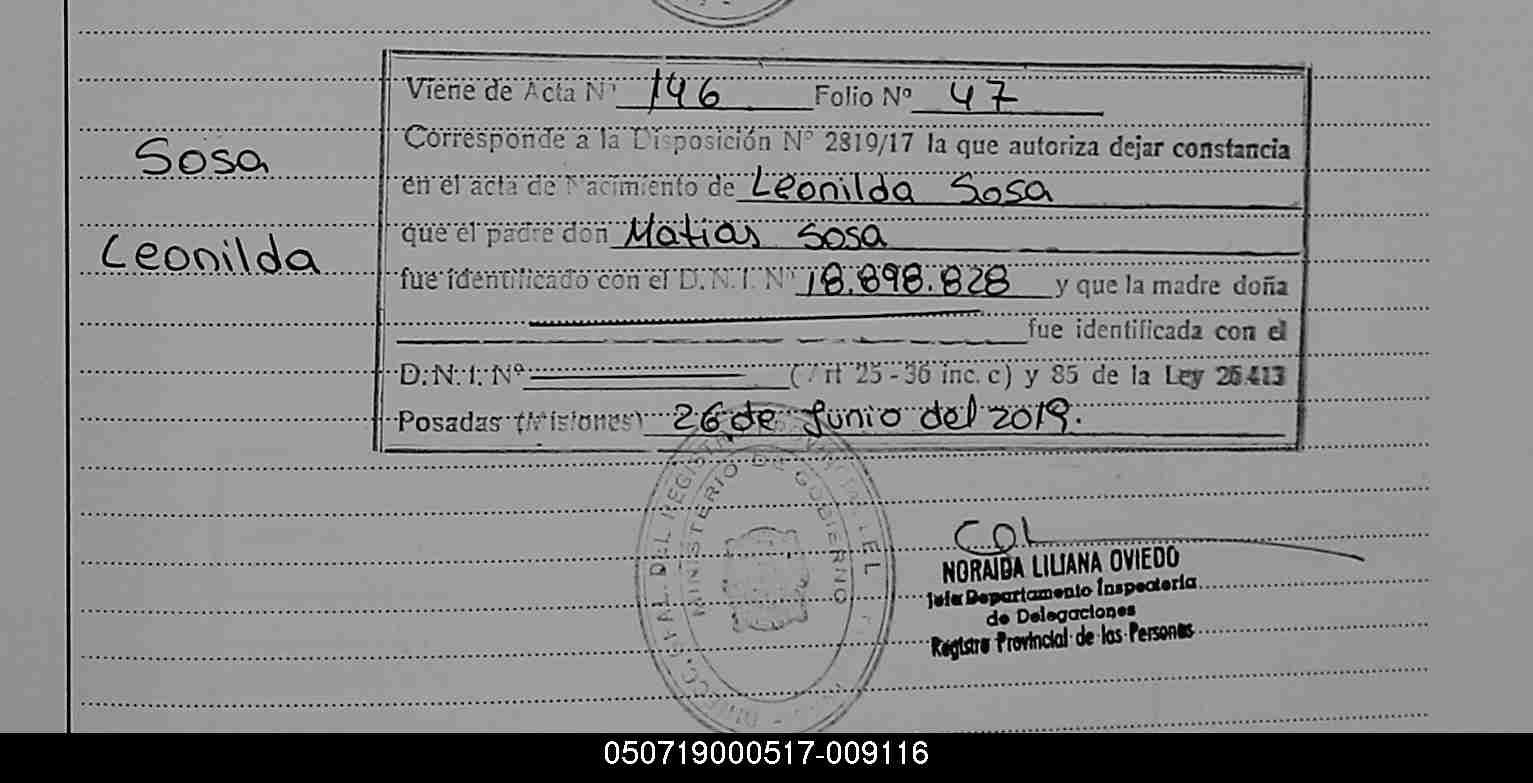 Viene de Acta Nº 146 Folio Nº 47
Corresponde a la Disposición Nº 2819/17 la que autoriza dejar constancia
en el acta de Nacimiento de Leonilda Sosa
que el padre don Matias Sosa
fue identificado con el D.N.I. Nº 18.898.828 y que la madre doña
fue identificada con el
D.N.I. Nº (Art 25-36 inc. c) y 85 de la Ley 26.413
Posadas (Misiones) 26 de Junio del 2019.
Sosa
Leonilda
MINISTERIO DE GOBIERNO
NORAIDA LILIANA OVIEDO
Jefe Departamento Inspectoría
de Delegaciones
Registro Provincial de las Personas
050719000517-009116